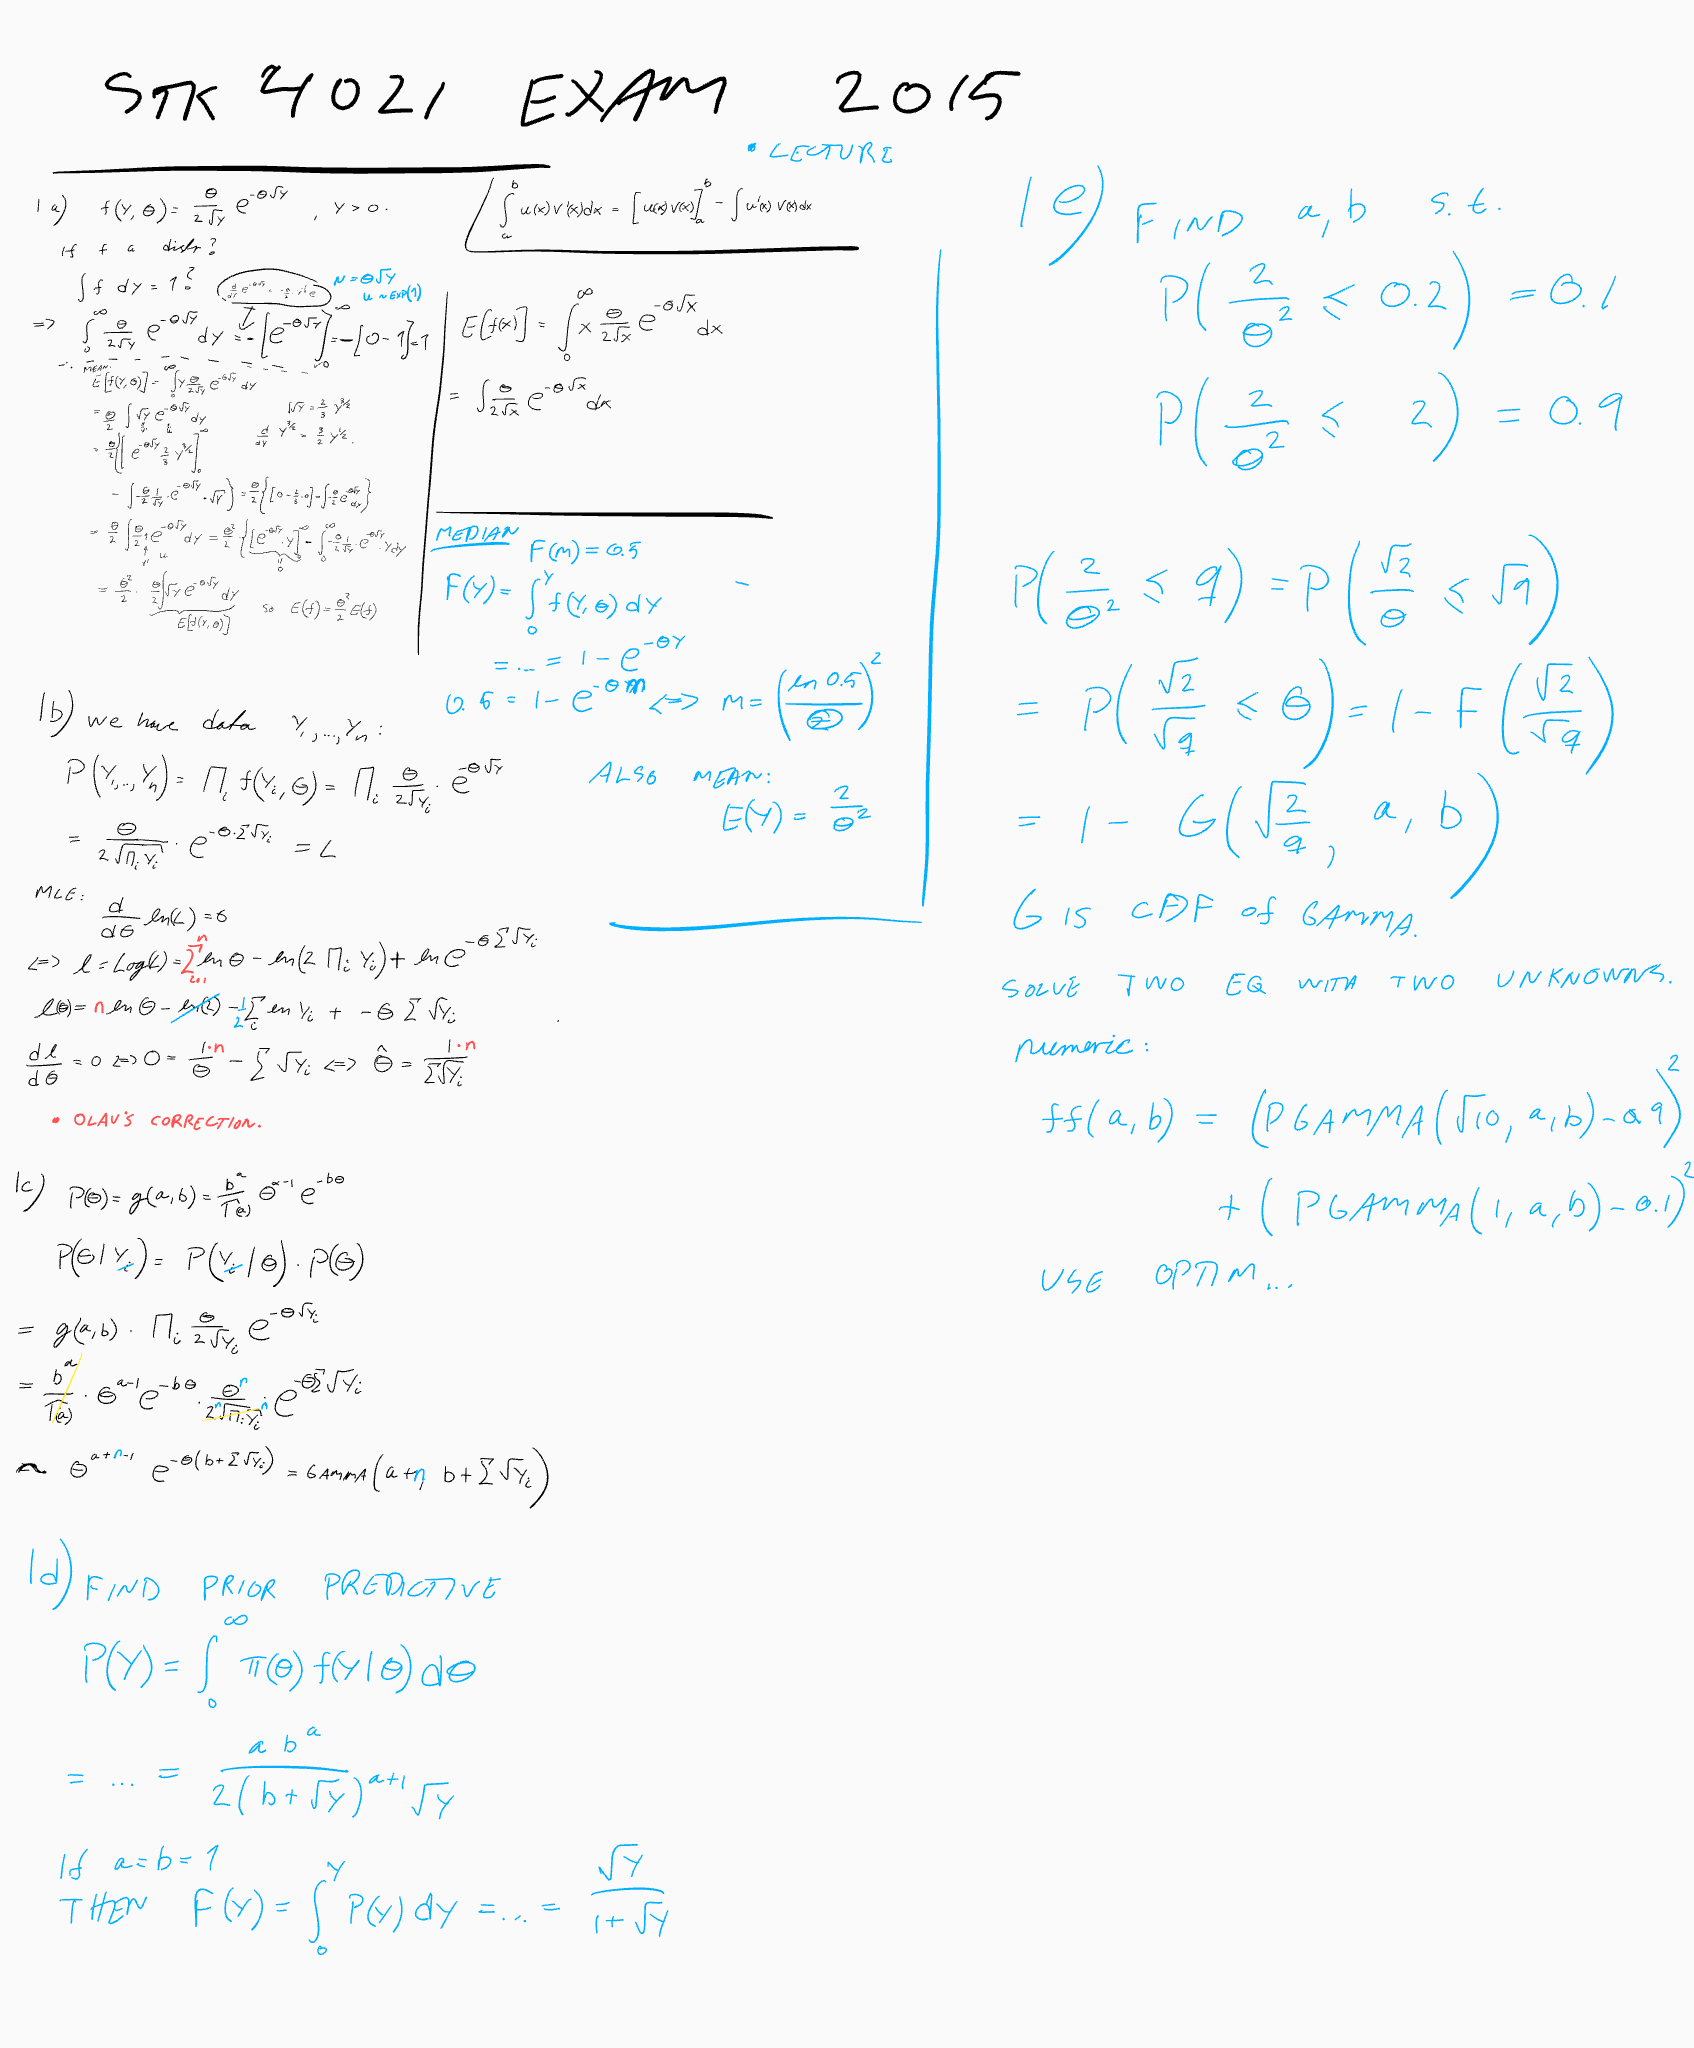 STK 4021 EXAM 2015
• LECTURE
1a) f(y,θ) = θ/(2√y) e^{-θ√y} , y > 0.
∫_a^b u(x)v'(x)dx = [u(x)v(x)]_a^b - ∫u'(x)v(x)dx
If f a distr?
∫f dy = 1?
u = θ√y
u ~ EXP(1)
=> ∫_0^∞ θ/(2√y) e^{-θ√y} dy = -[e^{-θ√y}]_0^∞ = -[0-1]=1
MEAN:
E[f(y,θ)] = ∫_0^∞ y θ/(2√y) e^{-θ√y} dy
= θ/2 ∫√y e^{-θ√y} dy
∫√y = 2/3 y^{3/2}
d/dy y^{3/2} = 3/2 y^{1/2}.
= θ/2 {[e^{-θ√y} 2/3 y^{3/2}]_0^∞
= θ²/2 · θ/2 ∫√y e^{-θ√y} dy
E[f(y,θ)]
so E(f) = θ²/2 E(f)
E[f(x)] = ∫_0^∞ x θ/(2√x) e^{-θ√x} dx
= ∫ θ/(2√x) e^{-θ√x} dx
MEDIAN
F(m) = 0.5
F(y) = ∫_0^y f(y,θ) dy
= ... = 1 - e^{-θy}
0.5 = 1 - e^{-θm} <=> m = (ln 0.5/θ)²
ALSO MEAN:
E(Y) = 2/θ²
1b) we have data Y₁,...,Yₙ:
P(Y₁,..,Yₙ) = Π_i f(Y_i,θ) = Π_i θ/(2√Y_i) · e^{-θ√Y}
= θ/(2√(Π_i Y_i)) · e^{-θ·Σ√Y_i} = L
MLE:
d/dθ ln(L) = 0
<=> l = Log(L) = Σ_{i=1}^n ln θ - ln(2 Π_i Y_i) + ln e^{-θΣ√Y_i}
l(θ) = n ln θ - ln(2) - 1/2 Σ_i ln Y_i + -θ Σ√Y_i
dl/dθ = 0 <=> 0 = 1·n/θ - Σ√Y_i <=> θ̂ = 1·n/Σ√Y_i
• OLAV'S CORRECTION.
1c) P(θ) = g(a,b) = b^a/Γ(a) θ^{a-1} e^{-bθ}
P(θ|Y_i) = P(Y_i|θ) · P(θ)
= g(a,b) · Π_i θ/(2√Y_i) e^{-θ√Y_i}
= b^a/Γ(a) · θ^{a-1} e^{-bθ} · θ^n/(2^n √(Π_i Y_i^n)) · e^{-θΣ√Y_i}
~ θ^{a+n-1} e^{-θ(b+Σ√Y_i)} = GAMMA(a+n, b+Σ√Y_i)
1d) FIND PRIOR PREDICTIVE
P(Y) = ∫_0^∞ π(θ) f(y|θ) dθ
= ... = a b^a / (2(b+√y)^{a+1} √y)
If a=b=1
THEN F(y) = ∫_0^y P(y) dy = ... = √y/(1+√y)
1e) FIND a, b s.t.
P(2/θ² ≤ 0.2) = 0.1
P(2/θ² ≤ 2) = 0.9
P(2/θ² ≤ q) = P(√2/θ ≤ √q)
= P(√2/√q ≤ θ) = 1 - F(√2/√q)
= 1 - G(√(2/q), a, b)
G IS CDF of GAMMA.
SOLVE TWO EQ WITH TWO UNKNOWNS.
numeric:
ff(a,b) = (PGAMMA(√10, a,b) - 0.9)²
+ (PGAMMA(1, a, b) - 0.1)²
USE OPTIM...